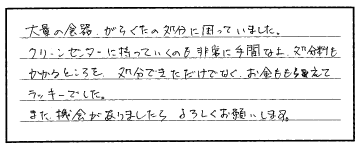 大量の食器、がらくたの処分に困っていました。
クリーンセンターに持っていくのも非常に手間な上、処分料も
かかるところを、処分できただけでなく、お金ももらえて
ラッキーでした。
また機会がありましたらよろしくお願いします。